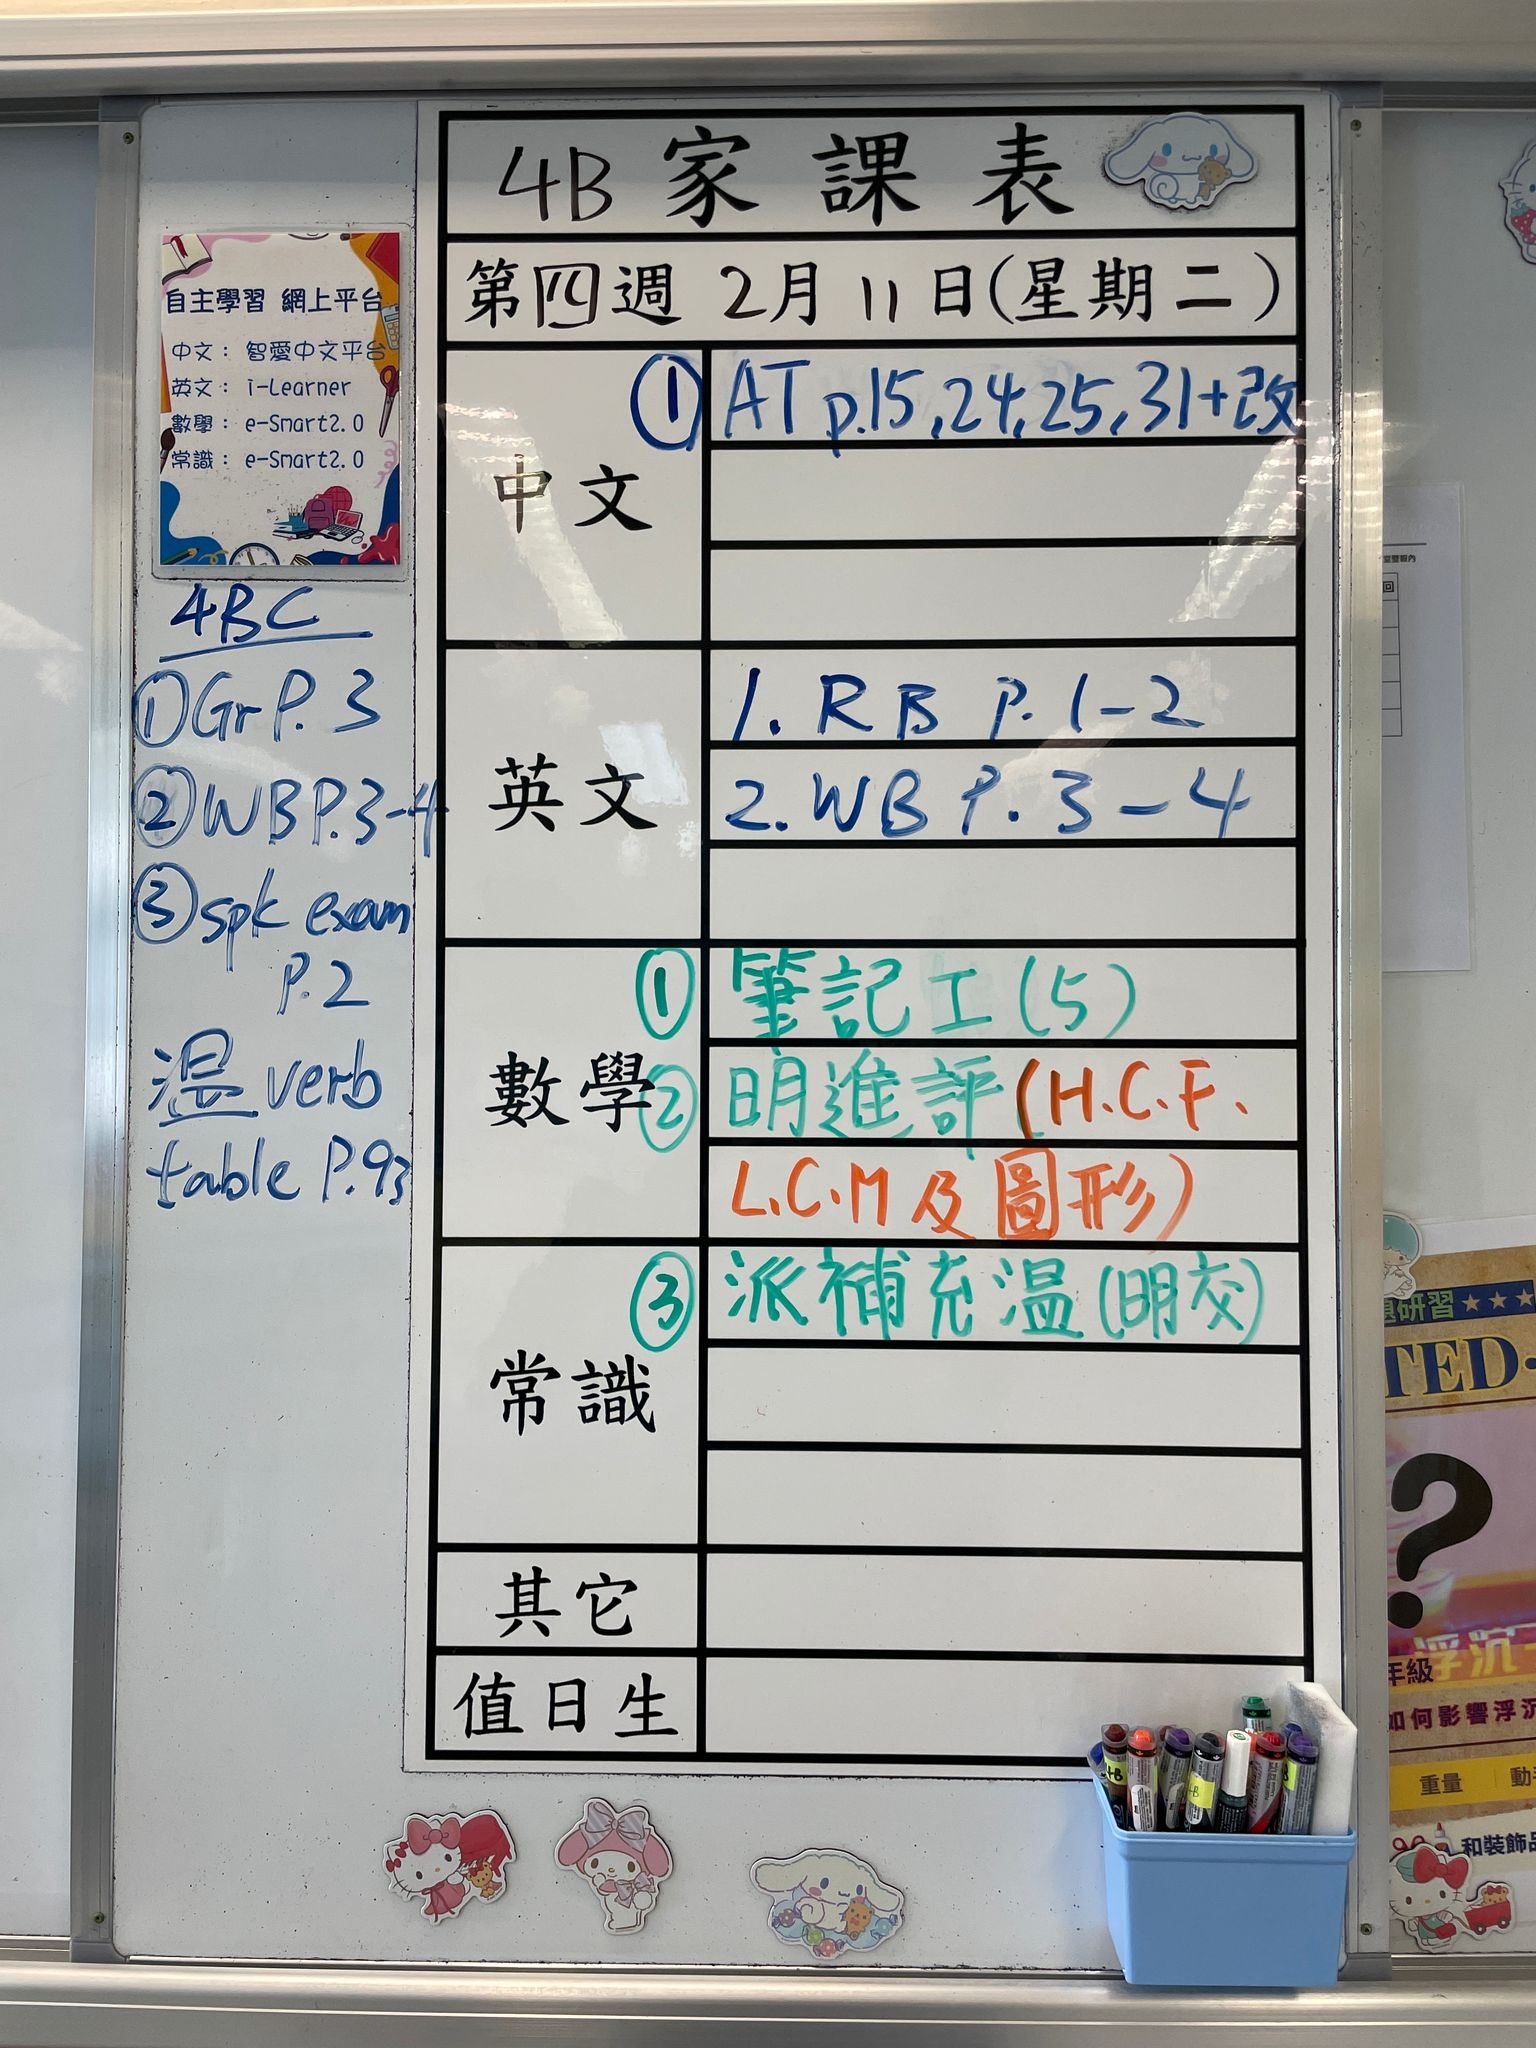 4B 家課表
第四週 2月11日(星期二)
自主學習 網上平台
中文: 智愛中文平台
英文: i-Learner
數學: e-Smart2.0
常識: e-Smart2.0
4BC
① Gr P.3
② WB P.3-4
③ spk exam
P.2
溫 verb
table P.93
中文
① AT p.15,24,25,31+改
英文
1. RB P.1-2
2. WB P.3-4
數學
① 筆記工(5)
② 明進評(H.C.F.
L.C.M及圖形)
常識
③ 派補充溫(明交)
其它
值日生
研習★★★
TED-
?
浮沉
年級
如何影響浮沉
重量
動手
和裝飾品